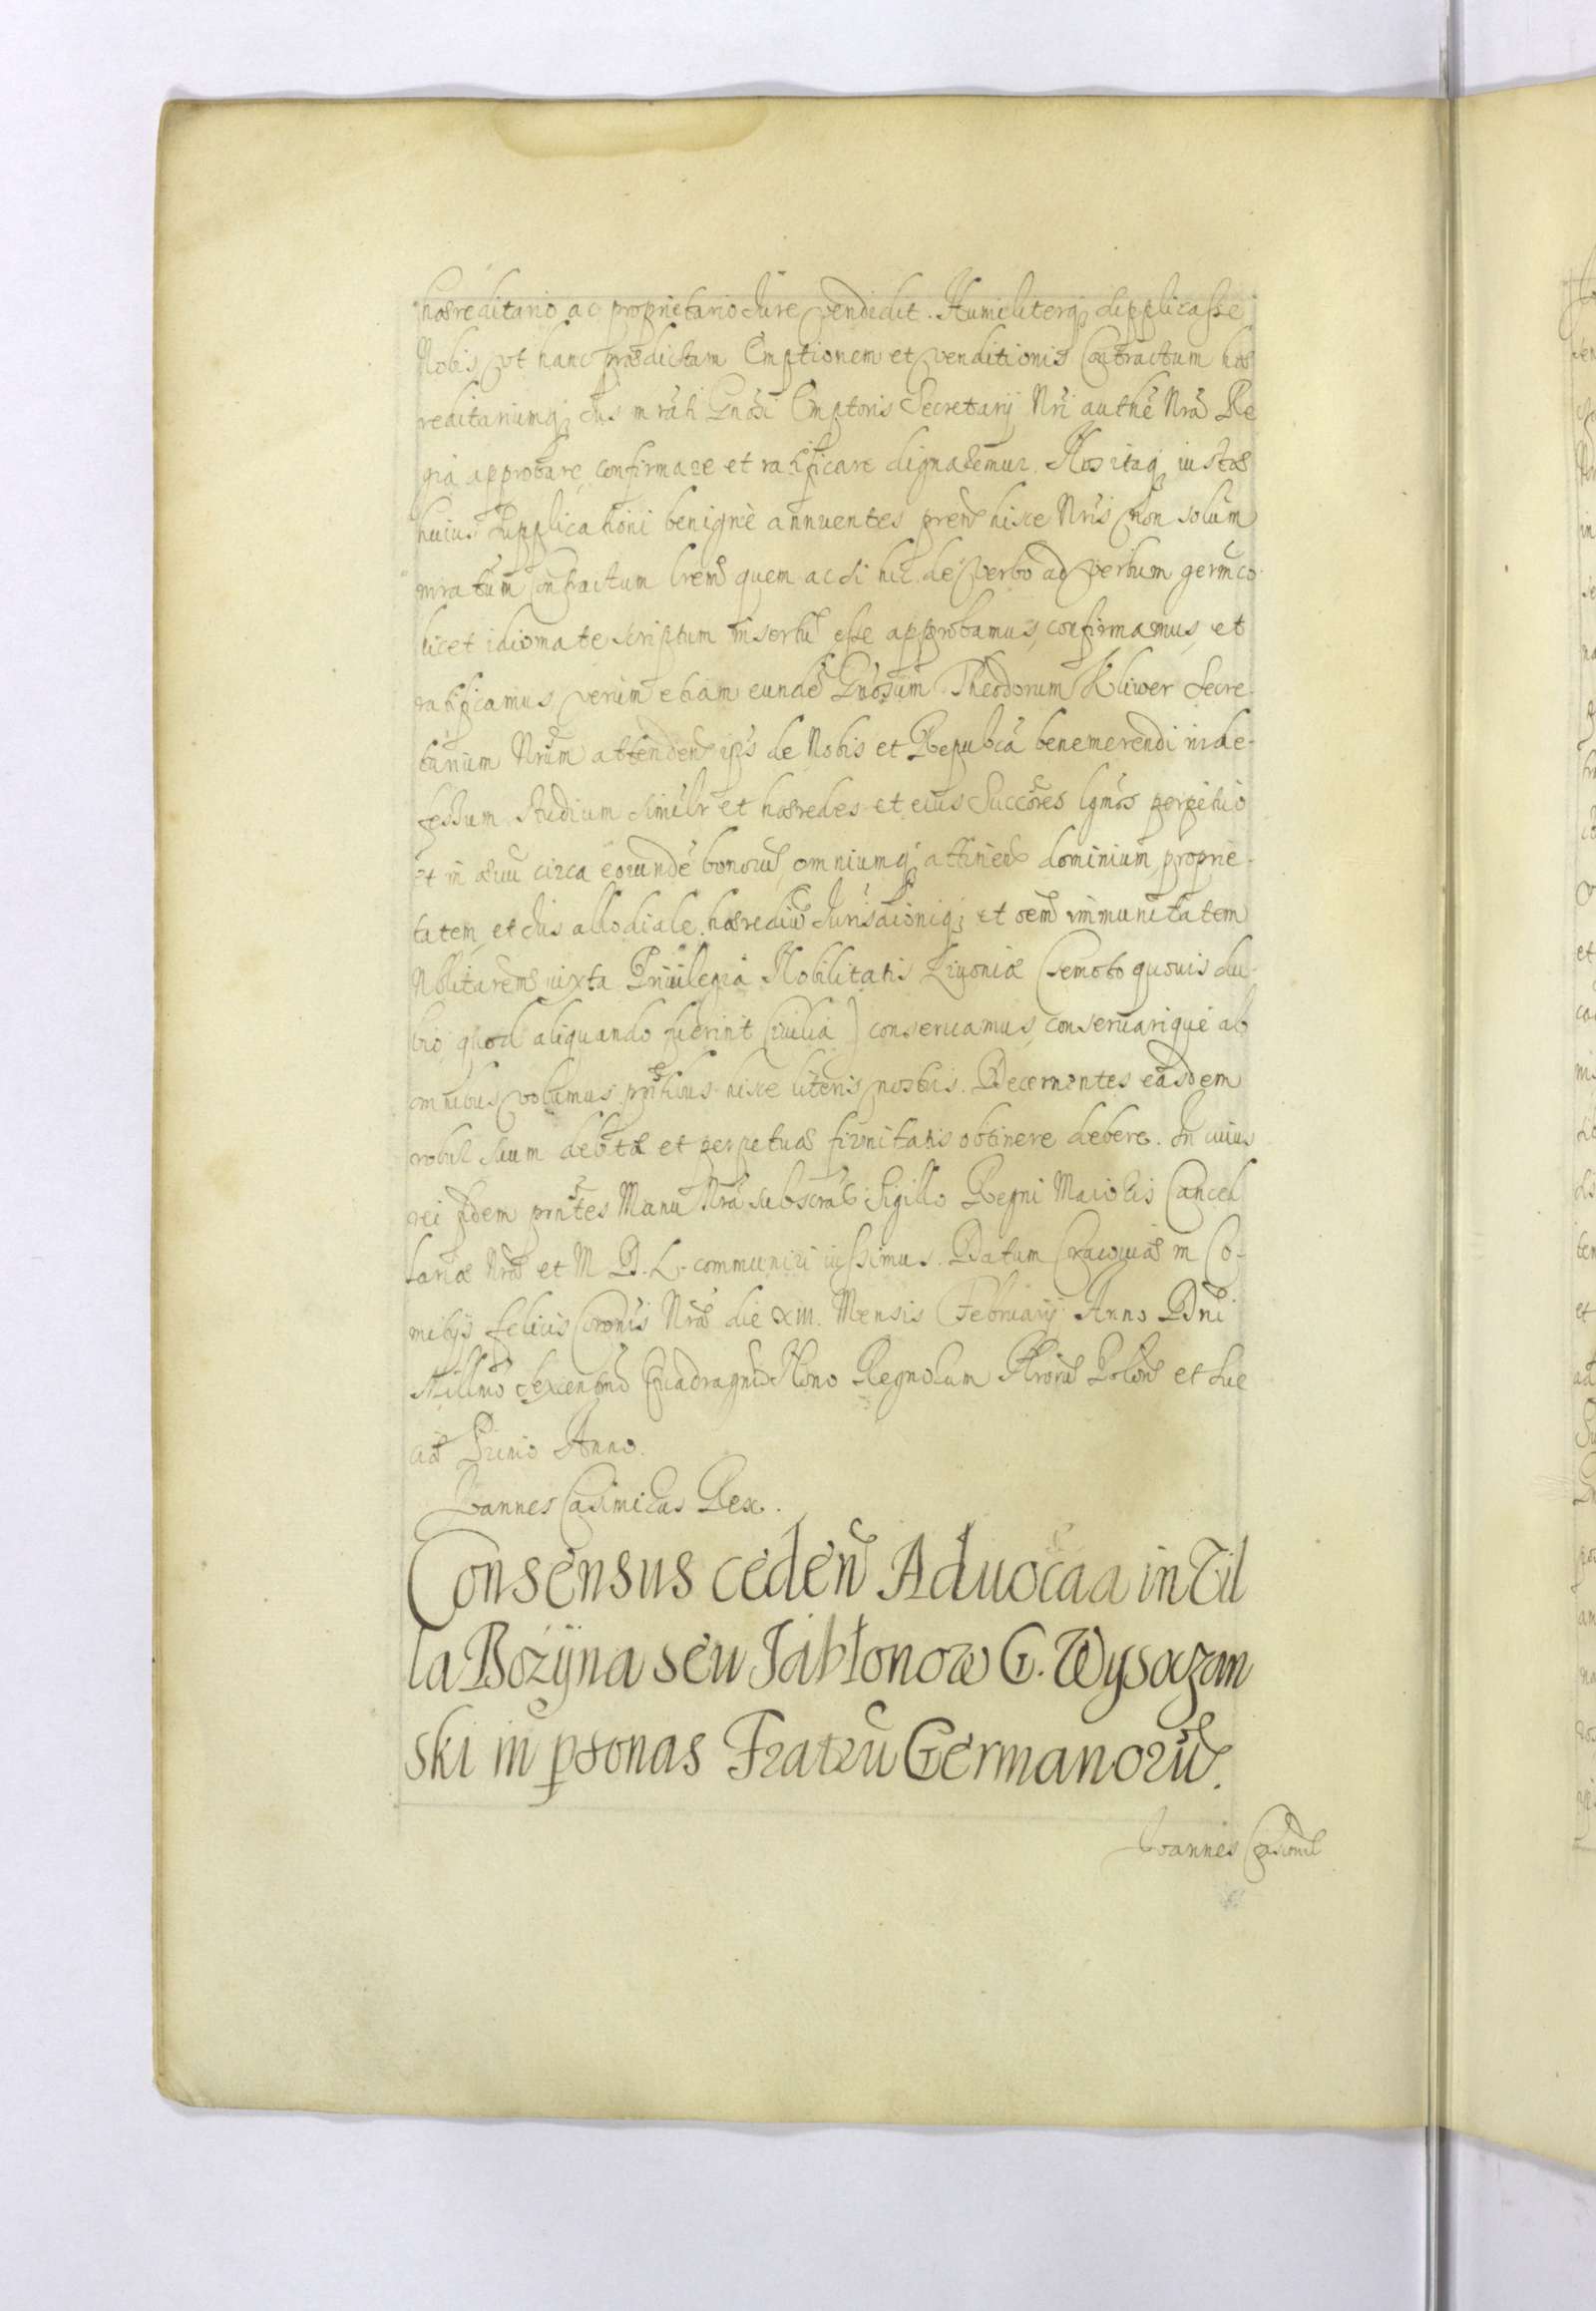 hæreditario ac proprietario Jure vendidit. Humiliterq; supplicasse
Nobis, vt hanc prædictam Emptionem et venditionis Contractum hæ
reditariumq; Jus mrãti Gnõsi Emptoris Secretarij Nr̃i authẽ Nrã Re
gia approbare, confirmare et ratificare dignaremur. Nos itaq; iustæ
huius Supplicationi benignè annuentes prẽn hisce Nrĩs non solum
mratum Contractum hrem quem ac si hic de verbo ad verbum germco
licet idiomate scriptum insertũ esse approbamus, confirmamus, et
ratificamus, verùm etiam eundẽ Gnosum Theodorum Kliwer Secre-
tarium Nrũm attenden ipĩs de Nobis et Repubcã benemerendi inde-
fessum Studium simulr et hæredes et eius Succōres lgmōs perpetuò
et in æuũ circa eorundẽ bonorũ omniumq; attinen dominium, proprie-
tatem, et Jus allodiale, hærediũ Jurisdōioniq; et oẽm immunitatem
Nbłitarem iuxta Priuilegia Nobilitatis Liuoniæ (semoto quouis du-
bio quod aliquando fuerint Ciuilia) conseruamus, conseruarique ab
omnibus volumus pñtibus hisce literis nostris. Decernentes easdem
robur suum debitæ et perpetuæ firmitatis obtinere debere. In cuius
rei fidem pñtes Manu Nrã subscrãs Sigillo Regni Maioris Cancel
lariæ Nræ et M D. L. communiri iussimus. Datum Cracouiæ in Co-
mitijs felicis Coronis Nræ die XIII. Mensis Februarij Anno Dñi
Millmõ Sexcentmõ Quadragmõ Nono Regnorum Nrorũ Polon et Sue
ciæ Primo Anno.
Joannes Casimirus Rex.
Consensus ceden Aduocaa in Vil
la Bożyna seu Jabłonow G. Wysoczan
ski in psonas Fratrũ Germanorũ.
Joannes Casimir